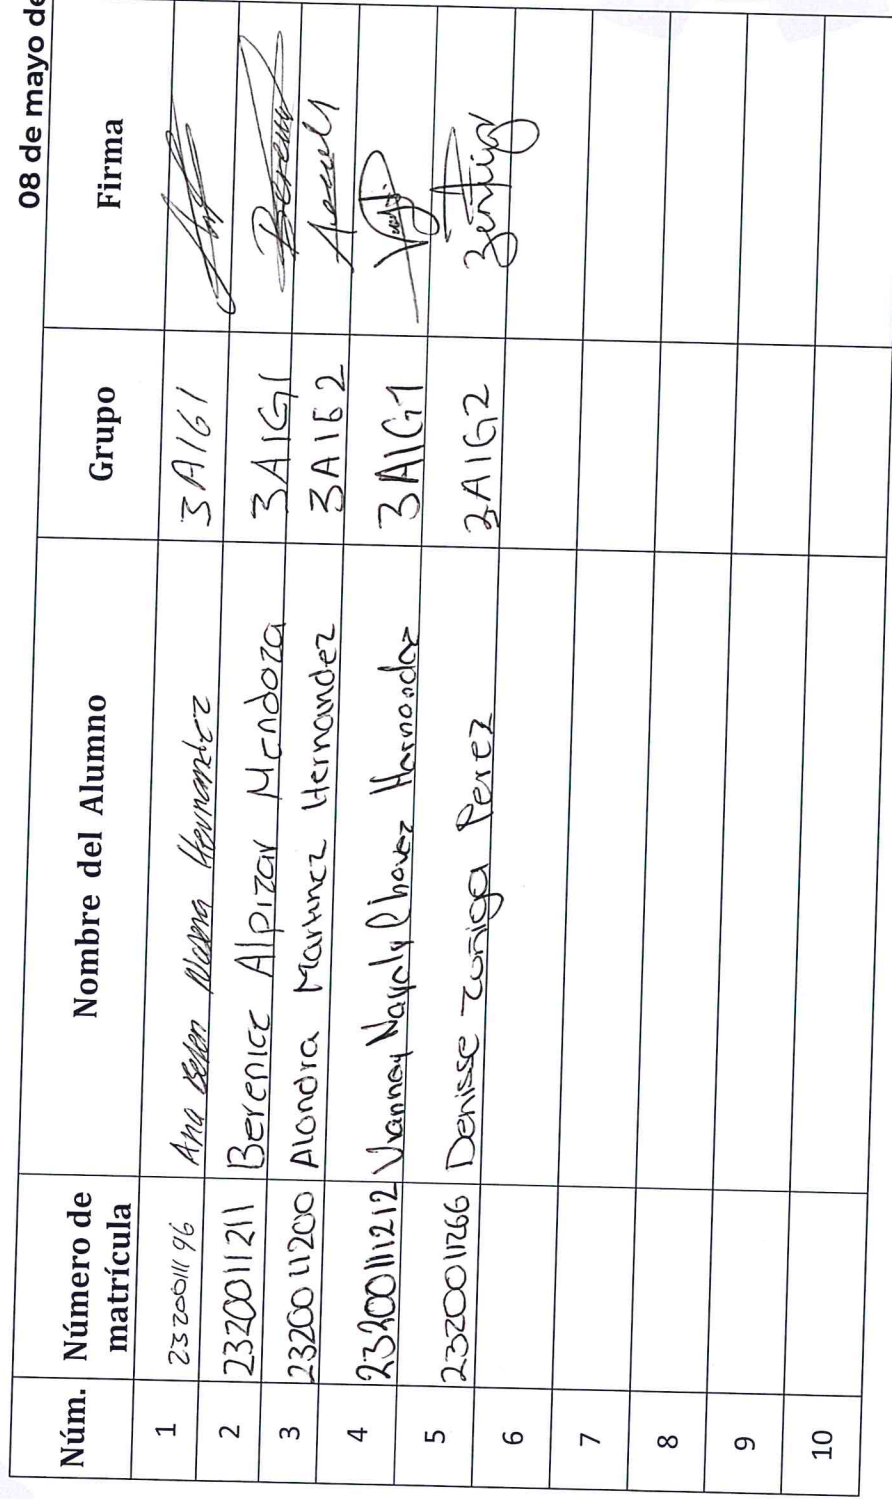 08 de mayo de
Núm. Número de matrícula Nombre del Alumno Grupo Firma
1 2320011196 Ana Belen Hernandez 3A1G1
2 2320011211 Berenice Alpizar Mendoza 3A1G1
3 2320011200 Alondra Martinez Hernandez 3A1G2
4 23200111212 Viannay Nayaly Chavez Hernandez 3A1G1
5 2320011266 Denisse Zuñiga Perez 2A1G2
6
7
8
9
10